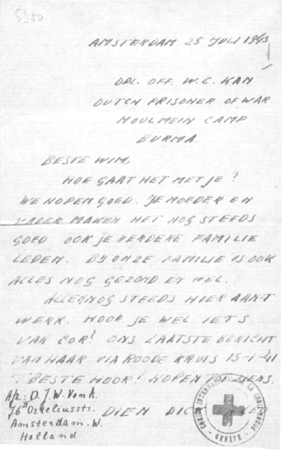 5300
AMSTERDAM 25 JULI 1943
DPL. OFF. W. C. KAN
DUTCH PRISONER OF WAR
MOULMEIN CAMP
BURMA.
BESTE WIM,
HOE GAAT HET MET JE?
WE HOPEN GOED. JE MOEDER EN
VADER MAKEN HET NOG STEEDS
GOED OOK JE VERDERE FAMILIE
LEDEN. BIJ ONZE FAMILIE IS OOK
ALLES NOG GEZOND EN WEL.
ALLE NOG STEEDS HIER AAN'T
WERK. HOOR JE WEL IETS
VAN COR? ONS LAATSTE BERICHT
VAN HAAR VIA ROODE KRUIS 15-1-41
BESTE HOOR! HOPEN
Afz: D. J. W. Vonk.
76 II Orteliusstr.
Amsterdam. W.
Holland
DIEN DIC
GENÈVE